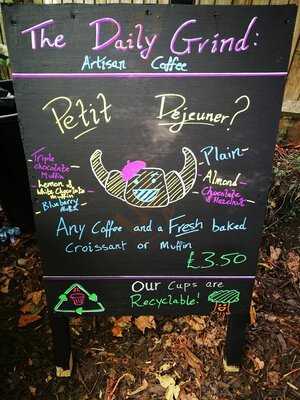 The Daily Grind:
Artisan Coffee
Petit Déjeuner?
Triple
chocolate
Muffin
Lemon &
White Chocolate
muffin
Blueberry
Plain
Almond
Chocolate
& Hazelnut
Any Coffee and a Fresh baked
Croissant or Muffin
£3.50
Our Cups are
Recyclable!